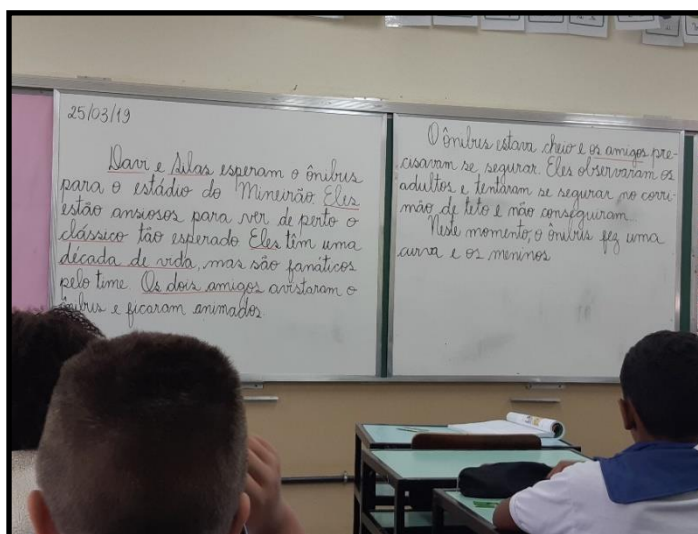 25/03/19
Davi e Silas esperam o ônibus
para o estádio do Mineirão. Eles
estão ansiosos para ver de perto o
clássico tão esperado. Eles têm uma
década de vida, mas são fanáticos
pelo time. Os dois amigos avistaram o
ônibus e ficaram animados.
O ônibus estava cheio e os amigos pre-
cisavam se segurar. Eles observaram os
adultos e tentaram se segurar no corri-
mão de teto e não conseguiram.
Neste momento, o ônibus fez uma
curva e os meninos